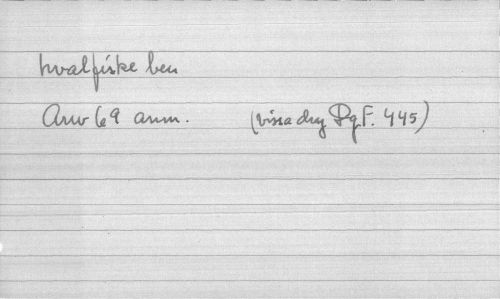 hvalfiske ben
Arw 69 anm. (vissa dry Pg F. 445)